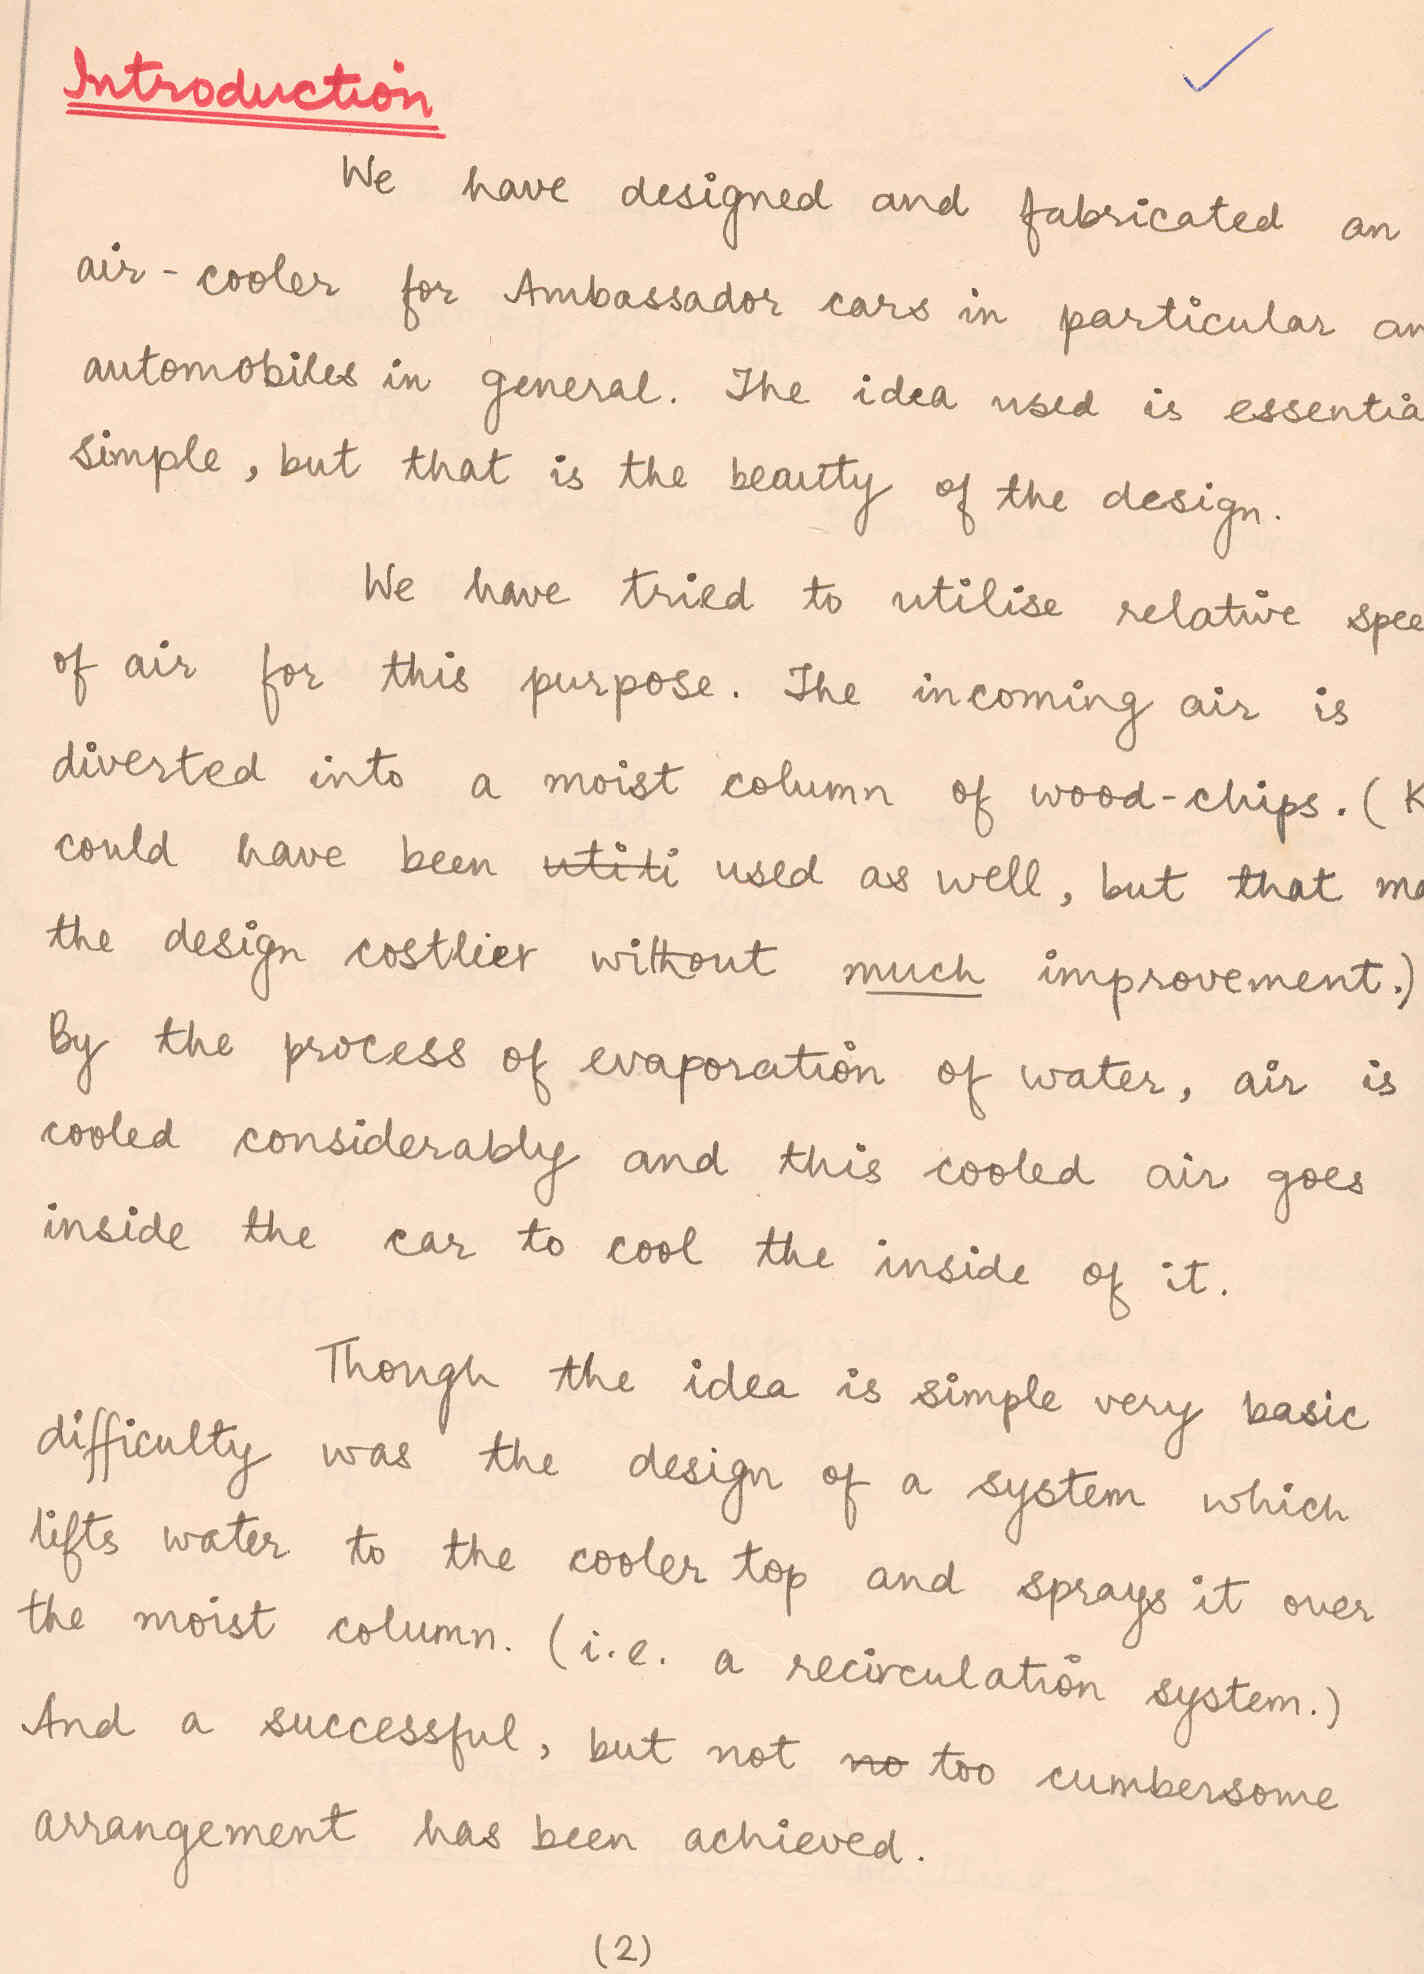 Introduction
We have designed and fabricated an
air-cooler for Ambassador cars in particular an
automobiles in general. The idea used is essentia
simple, but that is the beauty of the design.
We have tried to utilise relative spee
of air for this purpose. The incoming air is
diverted into a moist column of wood-chips. (K
could have been utiti used as well, but that ma
the design costlier without much improvement.)
By the process of evaporation of water, air is
cooled considerably and this cooled air goes
inside the car to cool the inside of it.
Though the idea is simple very basic
difficulty was the design of a system which
lifts water to the cooler top and sprays it over
the moist column. (i.e. a recirculation system.)
And a successful, but not no too cumbersome
arrangement has been achieved.
(2)